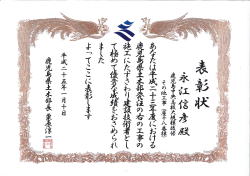 表彰状
永江信彦殿
あなたは平成二十三年度における
鹿児島県土木部発注の右の工事の
施工にたずさわり建設技術者とし
て極めて優秀な成績をおさめられ
ました
よってここに表彰します
平成二十五年一月十日
鹿児島県土木部長